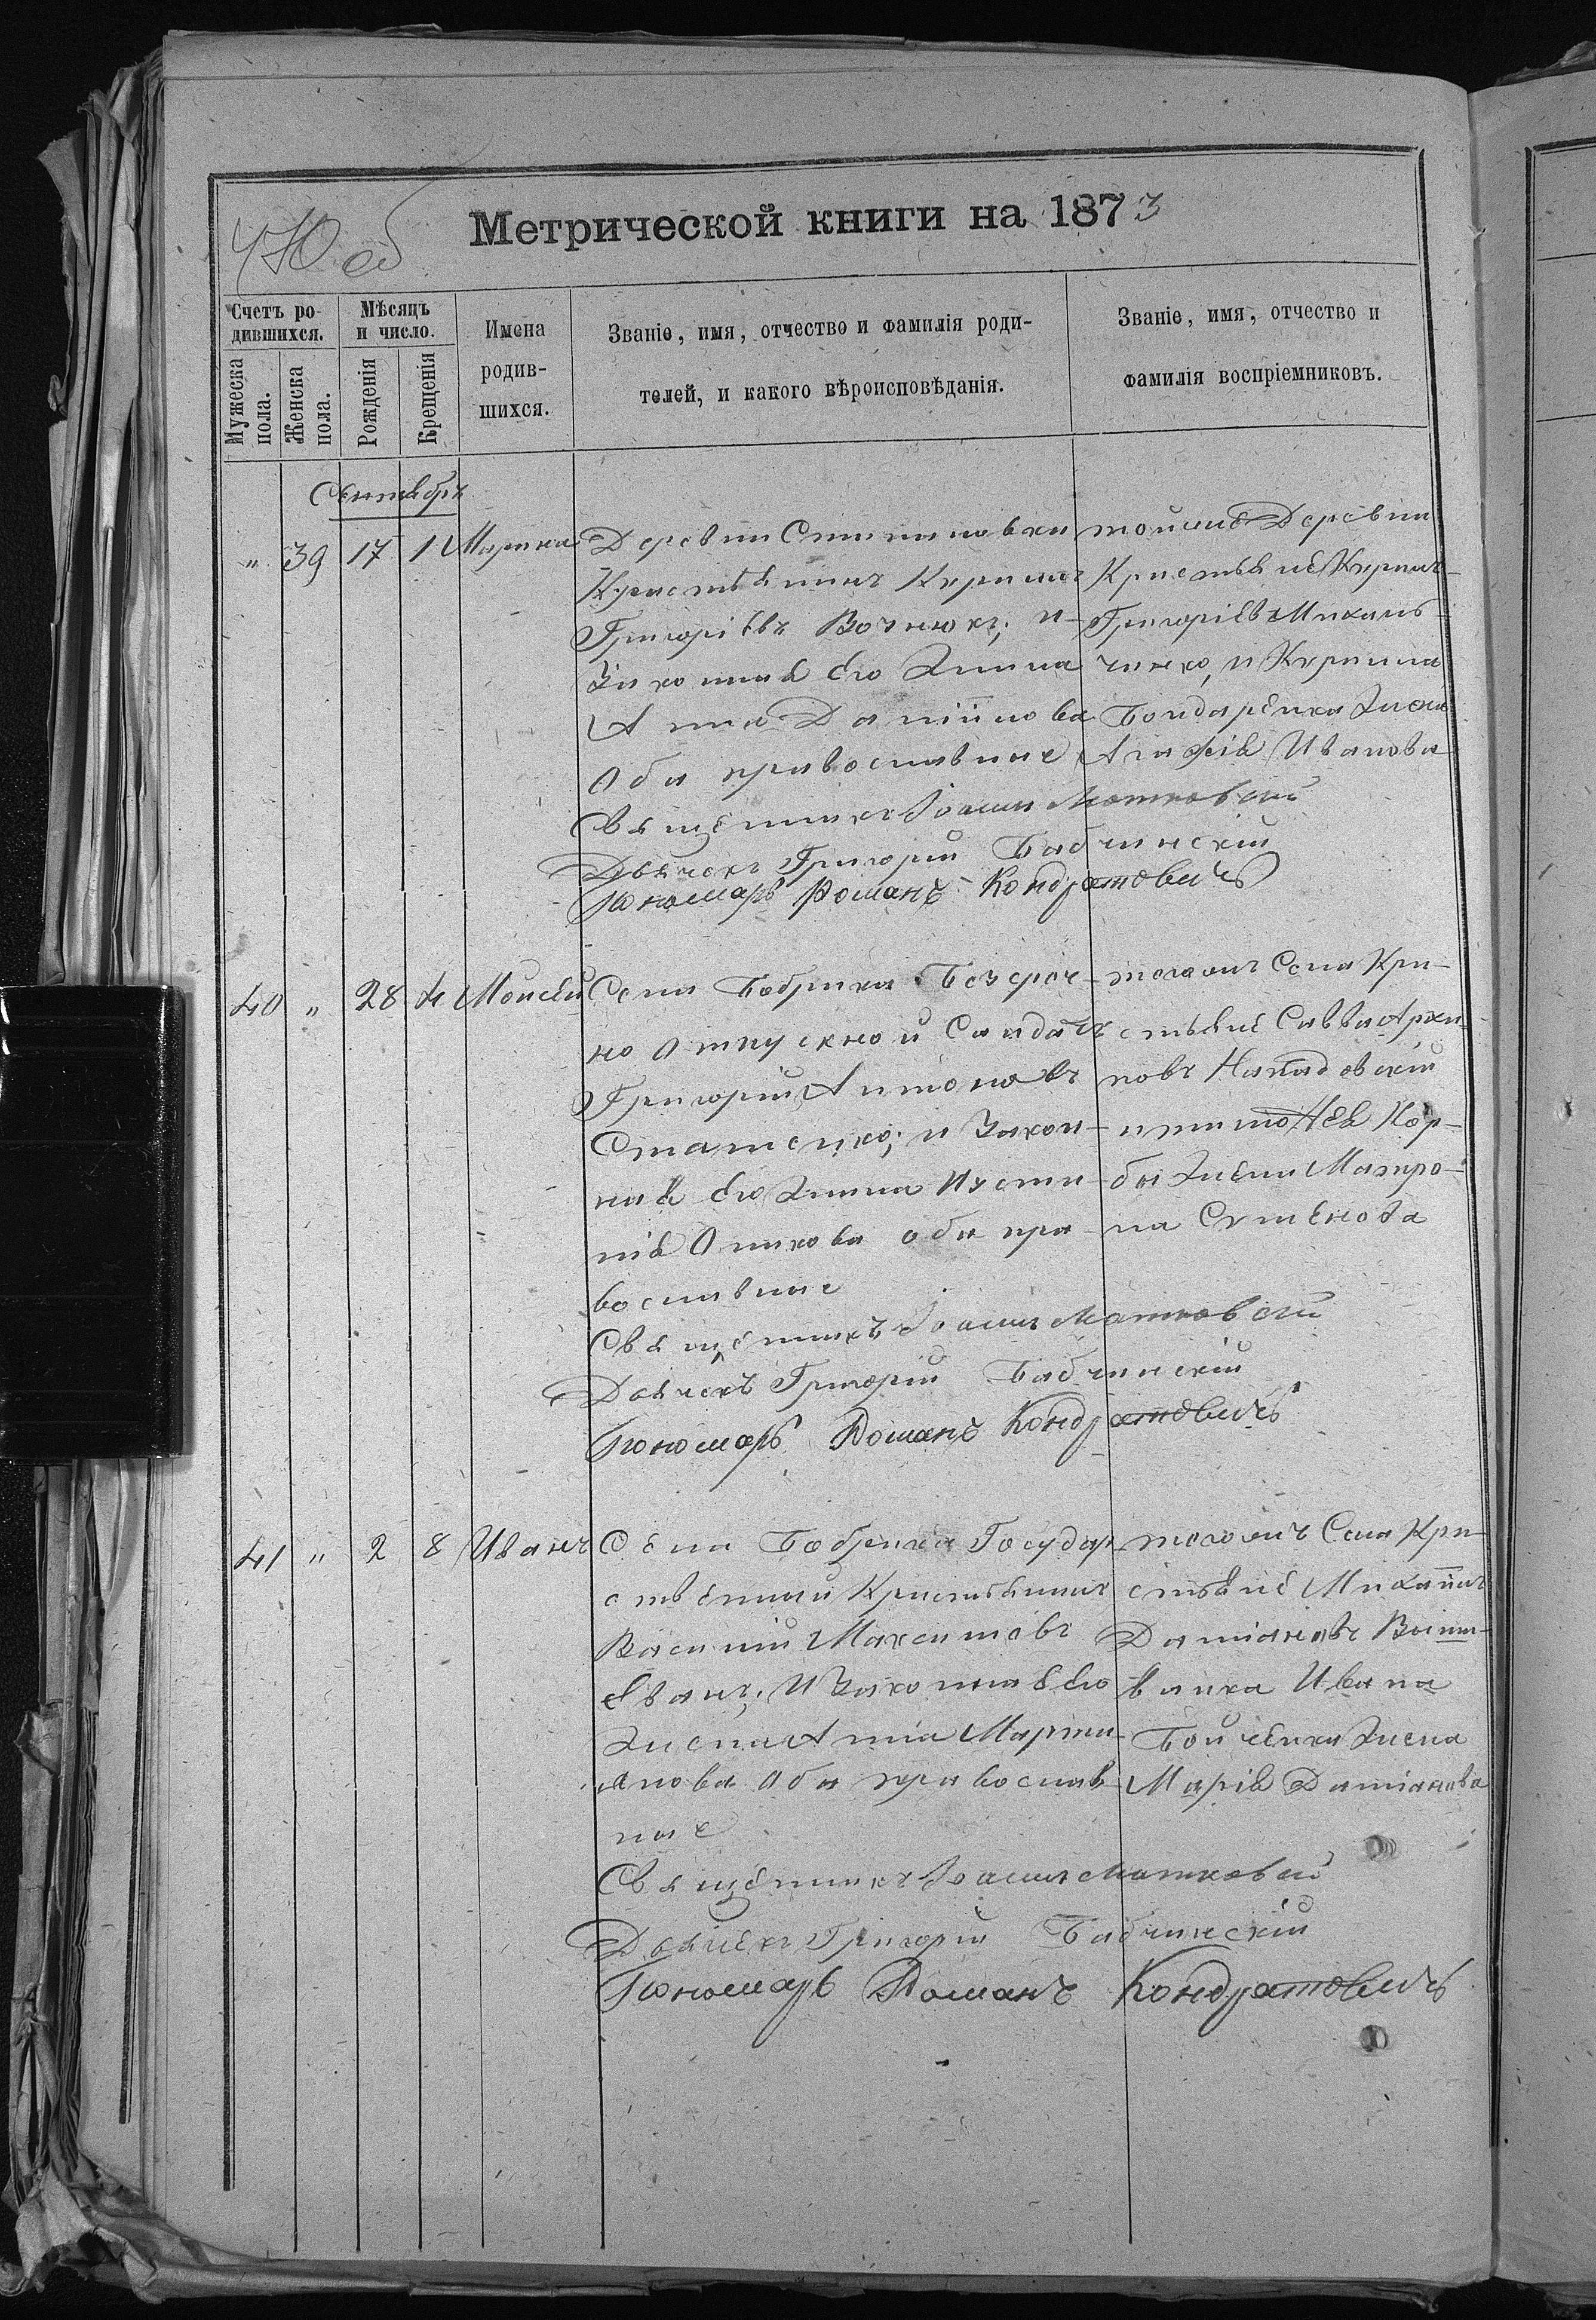 470 об
Метрической книги на 1873
Счетъ ро-
дившихся.
Мужеска
пола.
Женска
пола.
Мѣсяцъ
и число.
Рожденія
Крещенія
Имена
родив-
шихся.
Званіе, имя, отчество и фамилія роди-
телей, и какого вѣроисповѣданія.
Званіе, имя, отчество и
фамилія воспріемниковъ.
Сентябрь
" 39 17 1 Марина
Деревни
Кристьянинъ Кирилъ
Григоріевъ и
Законная его Жина
Анна Даніилова
Оба православные
Священникъ Іоаннъ Матковскій
Дьячекъ Григорій Бабчинскій
Пономарь Романъ Кондратовичъ
тойже Деревни
Кристьяне Кирилъ
Григоріевъ Михаль-
ченко, и Кирила
Бондаренка Жена
Агафія Иванова
40 " 28 4 Моисей
Села Бобрика Безсроч-
но отпускной Салдатъ
Григорій Антоновъ
Статенко; и Закон-
ная его Жина Иусти-
нія оба пра-
вославные
Священникъ Іоаннъ Матковскій
Дьячекъ Григорій Бабчинскій
Пономарь Романъ Кондратовичъ
тогожъ Села Кри-
стьяне Савва Архи-
повъ
Кор-
бы Жена Матро-
на Семенова
41 " 2 8 Иванъ
Села Бобрика Государ
ственный Кристьянинъ
Василій Максимовъ
и Законная его
Жена Анна Марти-
анова Оба православ-
ные
Священникъ Іоаннъ Матковскій
Дьячекъ Григорій Бабчинскій
Пономарь Романъ Кондратовичъ
тогожъ Села Кри-
стьяне Михаилъ
Даміановъ
Ивана
Бойченка Жена
Марія Даміанова